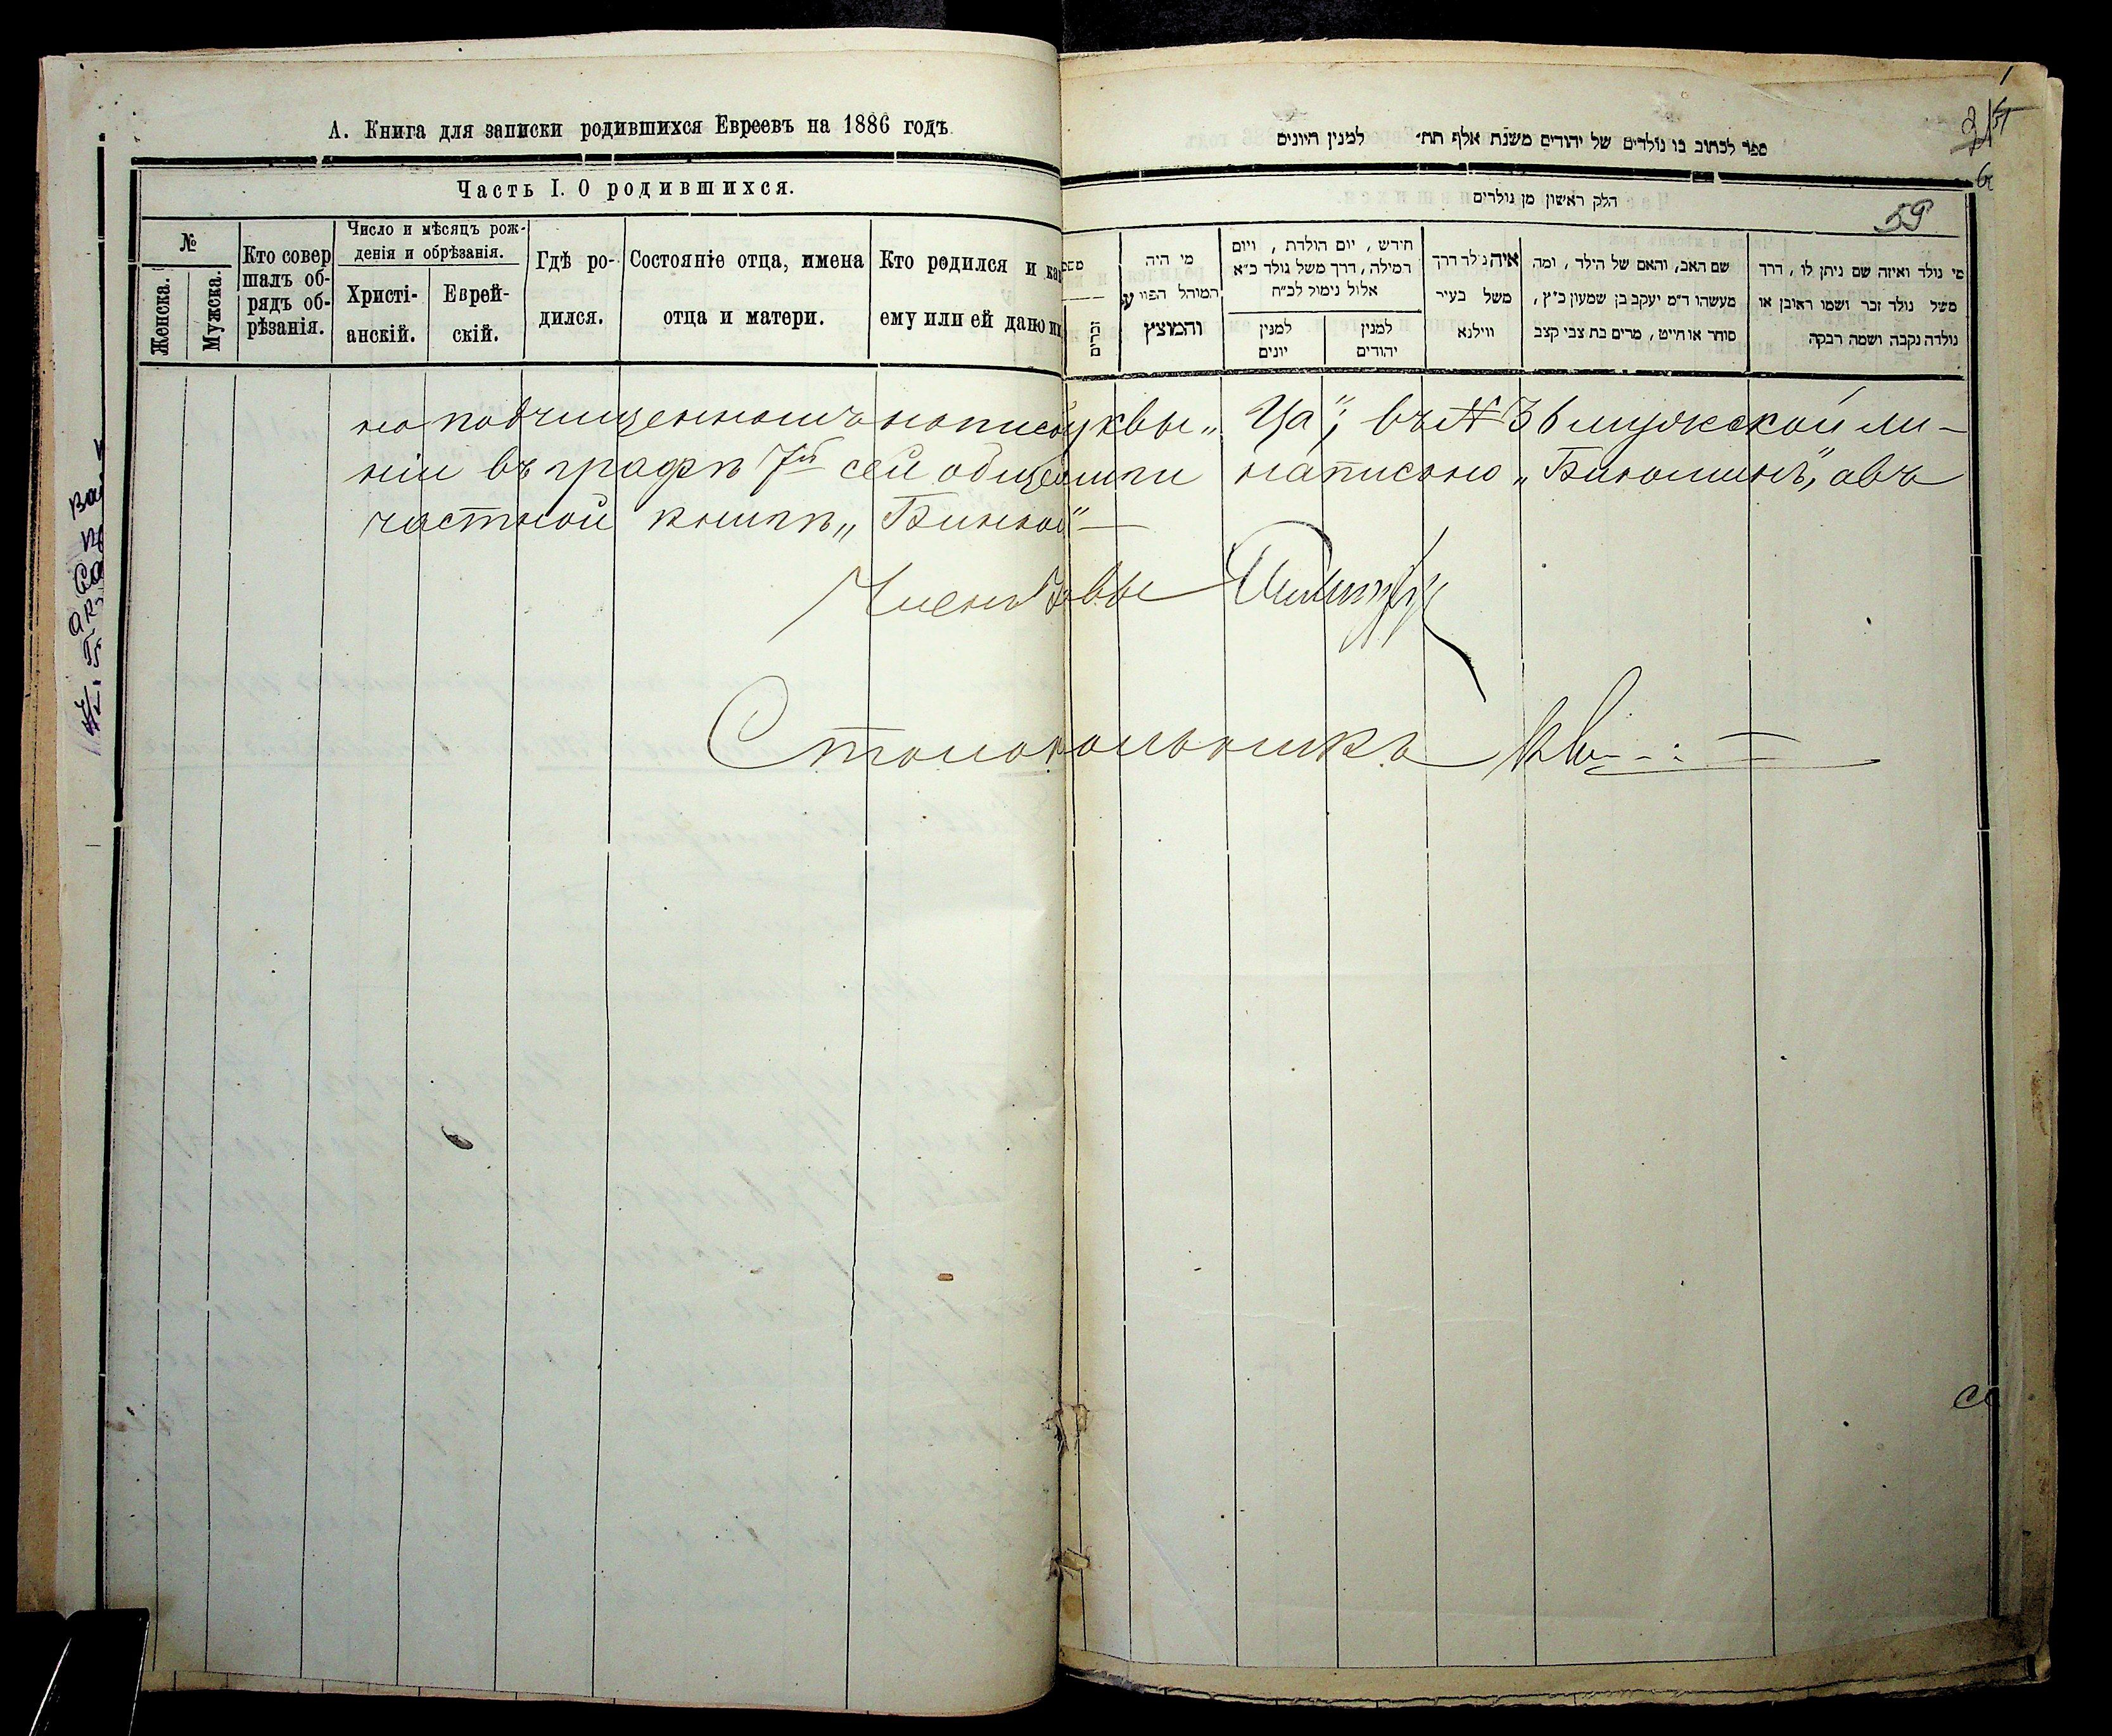 А. Книга для записки родившихся Евреевъ на 1886 годъ
Часть I. О родившихся.
№
Женска.
Мужска.
Кто совер
шалъ об-
рядъ об-
рѣзанія.
Число и мѣсяцъ рож-
денія и обрѣзанія.
Христі-
анскій.
Еврей-
скій.
Гдѣ ро-
дился.
Состояніе отца, имена
отца и матери.
Кто родился и как
ему или ей дано им
ספר לכתוב בו נולדים של יהודים משנת אלף תת׳ למנין היונים
חלק ראשון מן נולדים
59
זכרים
מי היה
המוהל הפורע
והמוצץ
חודש, יום הולדת, ויום
המילה, דרך משל נולד כ״א
אלול נימול לכ״ח
למנין
יונים
למנין
יהודים
איה נולד דרך
משל בעיר
ווילנא
שם האב, והאם של הילד, ומה
מעשהו ד״מ יעקב בן שמעון כ״ץ,
סוחר או חייט, מרים בת צבי קצב
מי נולד ואיזה שם ניתן לו, דרך
משל נולד זכר ושמו ראובן או
נולדה נקבה ושמה רבקה
но подчищенномъ написа буквы „Ца“; въ № 36 мужской ли-
ніи въ графѣ 7й сей общей написано „Биномин“, а въ
частной книгѣ „
Членъ
Столоначальникъ